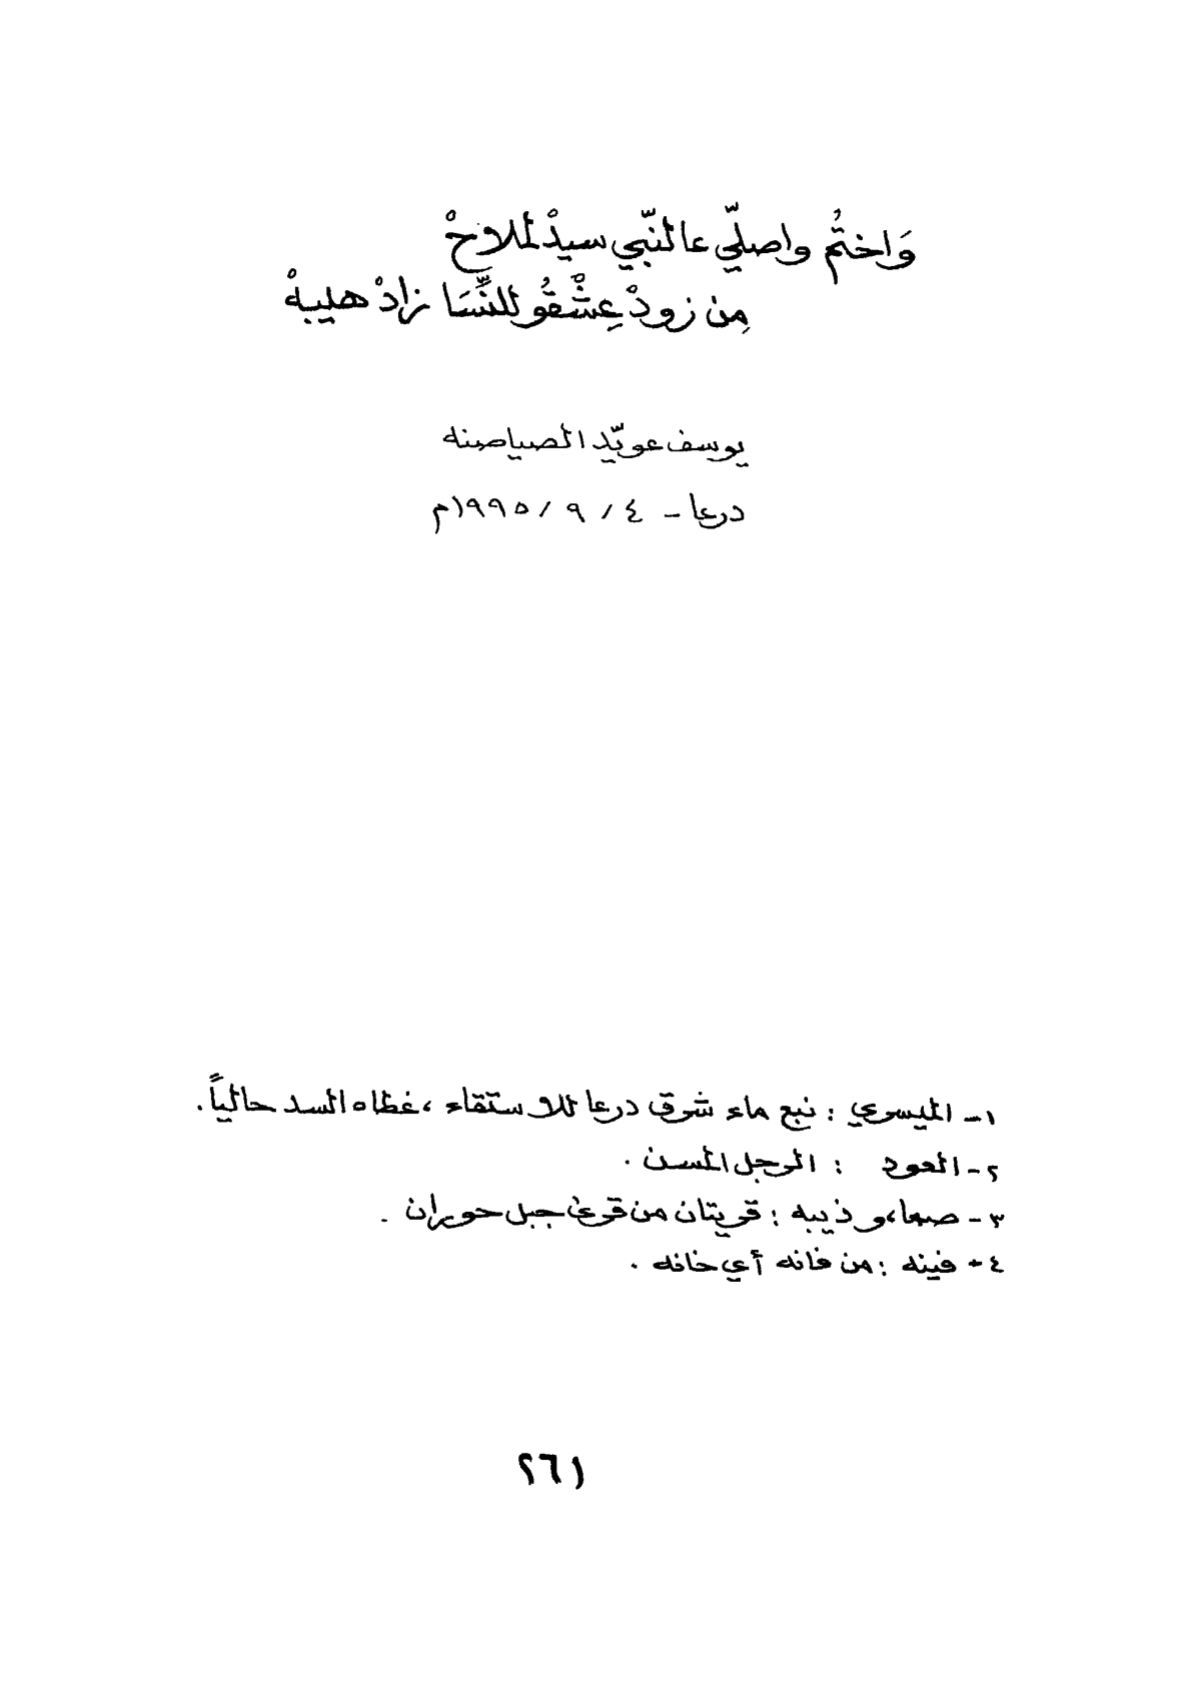 وَاختُم واصلّي عالنّبي سيدْ لملاحْ
مِن زودْ عِشْقُو للنِّسَا زادْ هيبهْ
يوسف عويّد الصياصنه
درعا - ٤ / ٩ / ١٩٩٥م
١- الميسري : نبع ماء شرق درعا للاستقاء ، غطاه السد حالياً .
٢- العود : الرجل المسن .
٣- صما، و ذيبه : قريتان من قرى جبل حوران .
٤- فينه : من فانه أي خانه .
٢٦١